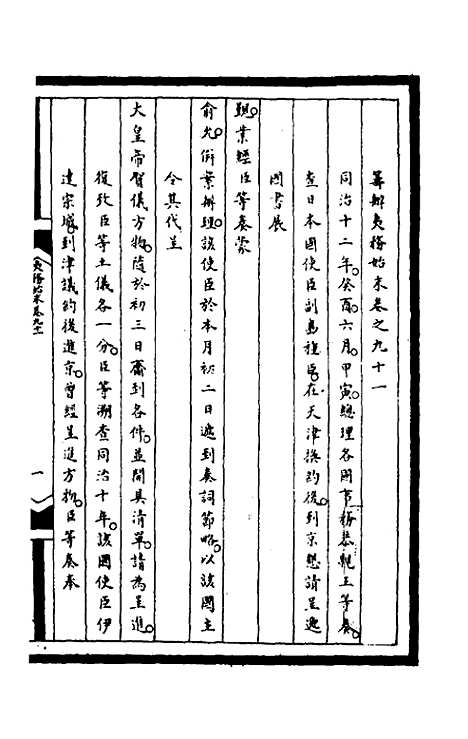 籌辦夷務始末卷之九十一
同治十二年癸酉六月甲寅總理各國事務恭親王等奏
查日本國使臣副島種臣在天津換約後到京懇請呈遞
國書展
覲業經臣等奏蒙
俞允併案辦理該使臣於本月初二日遞到奏詞節略以該國主
令其代呈
大皇帝賀儀方物隨於初三日齎到各件並開具清單請為呈進
復致臣等土儀各一分臣等溯查同治十年該國使臣伊
達宗城到津議約後進京曾經呈進方物臣等奏奉
夷務始末卷九十一
一